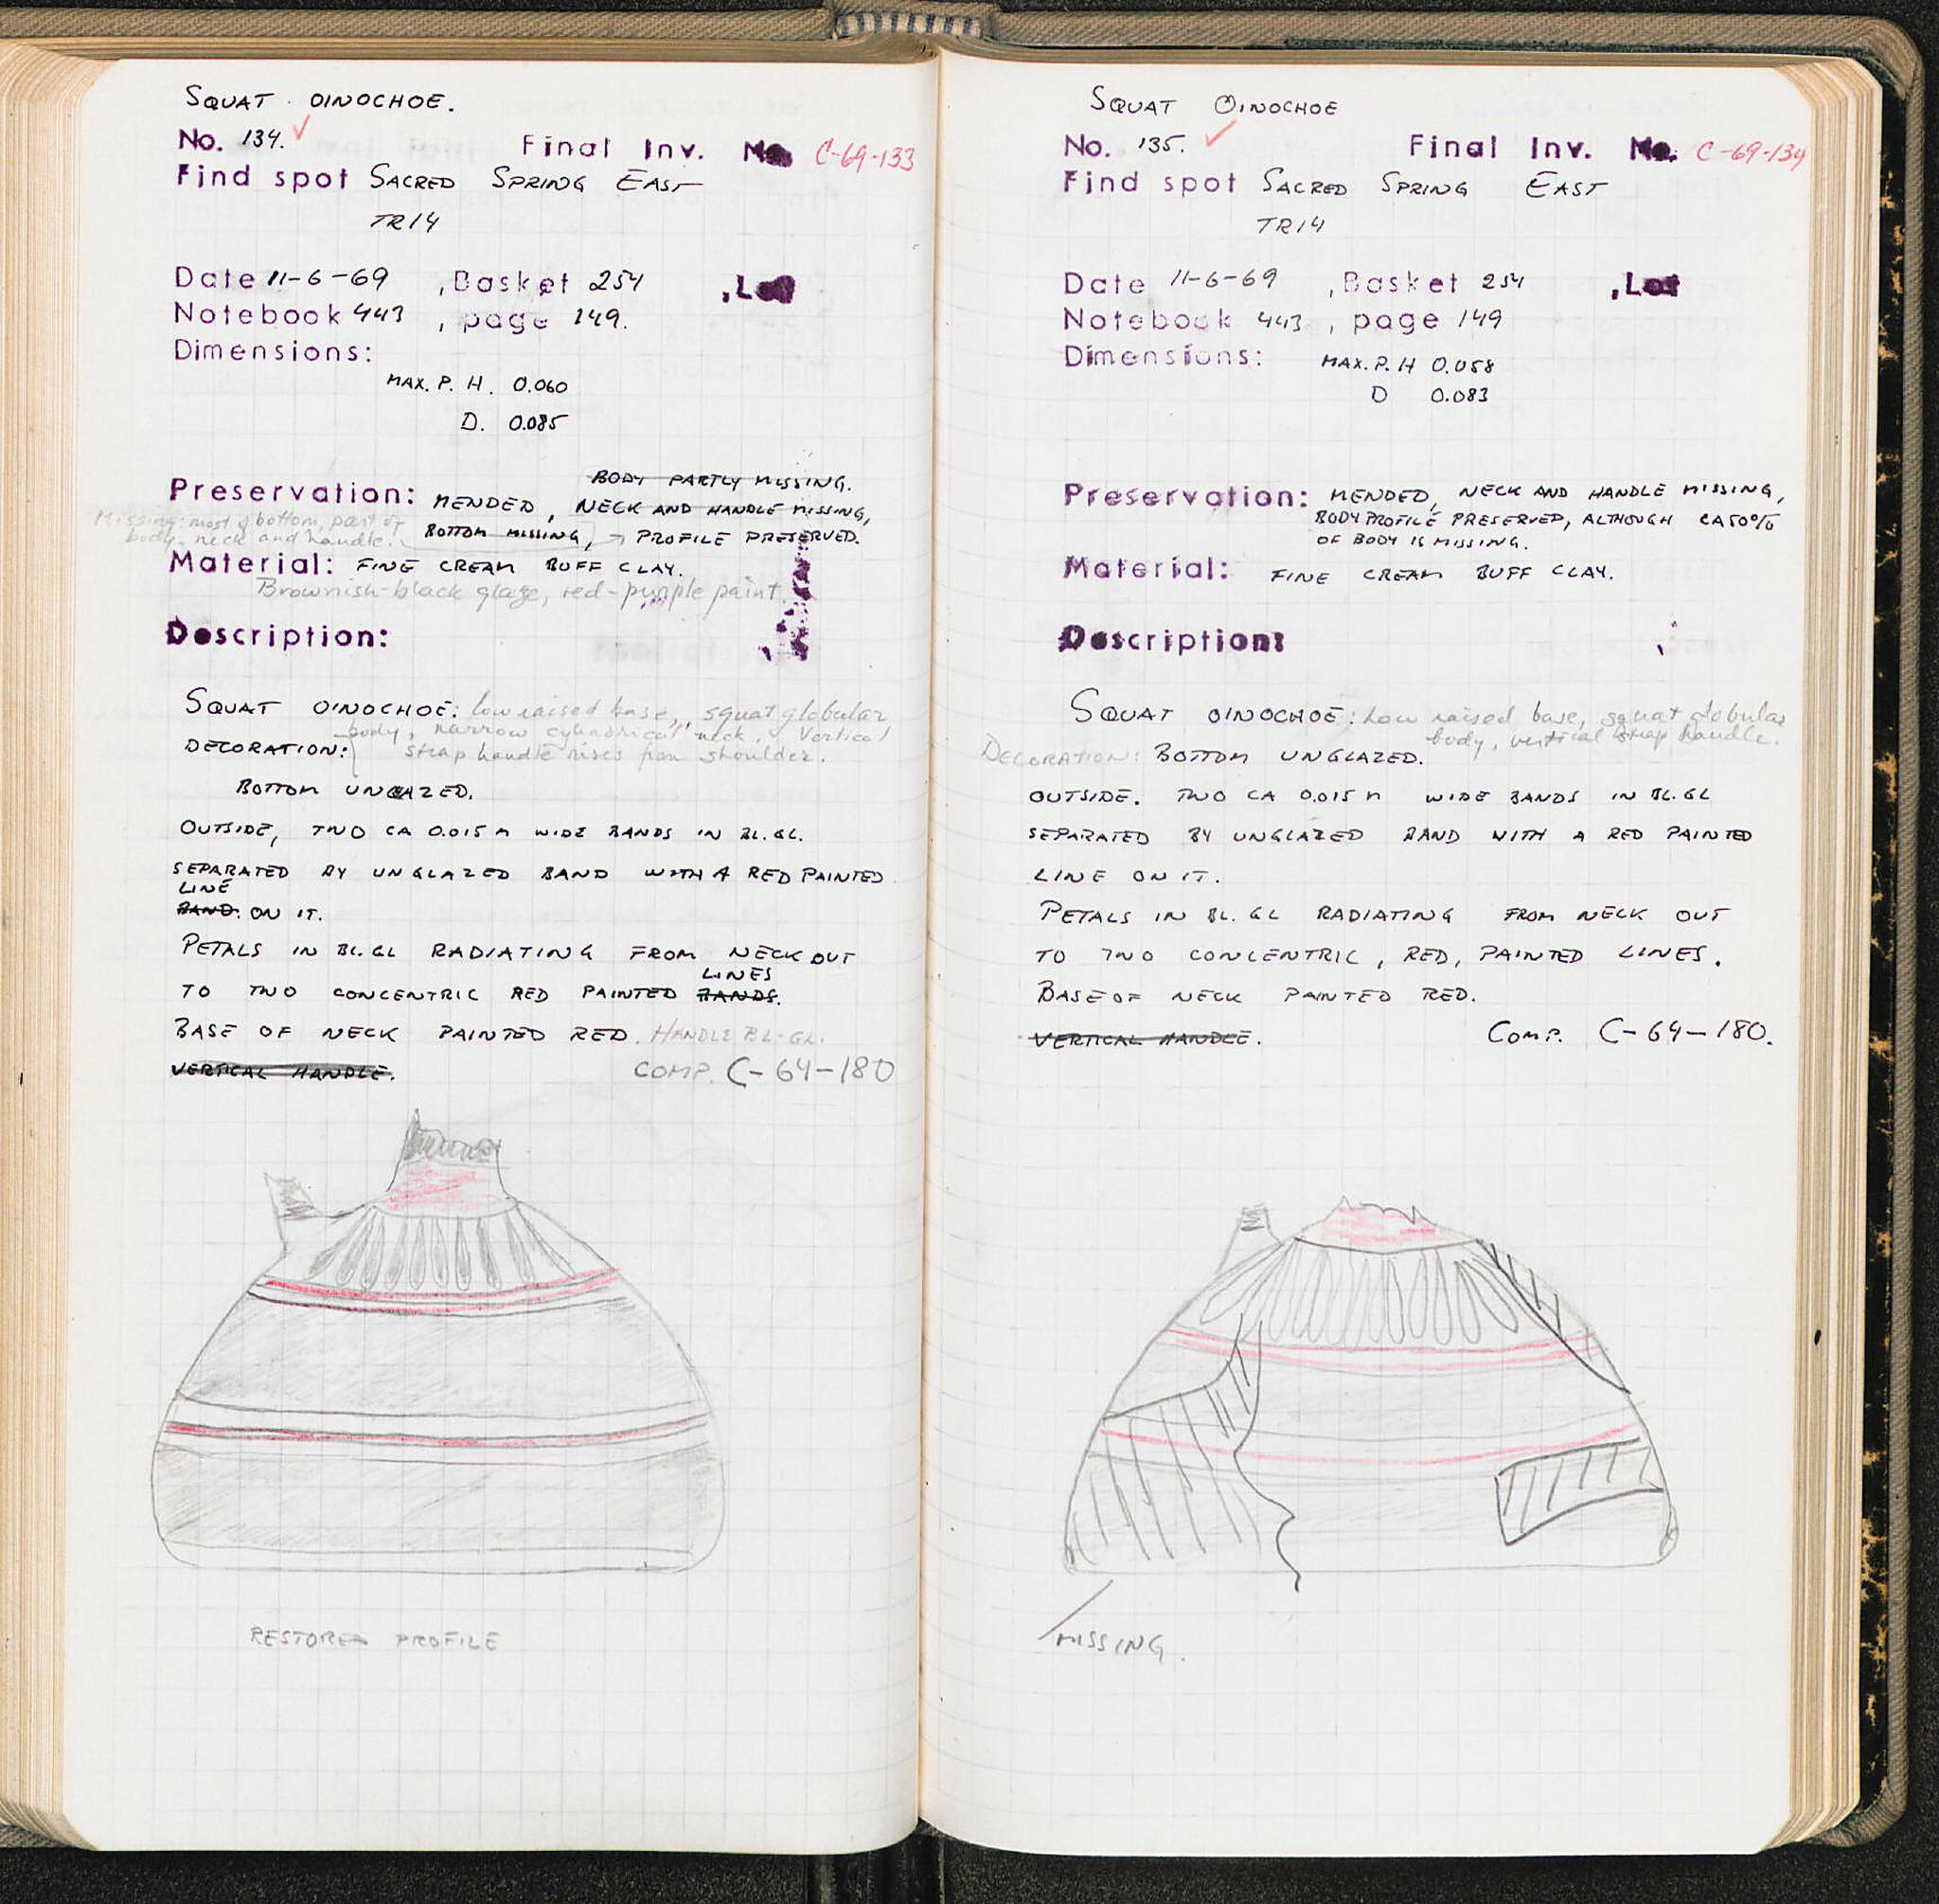 SQUAT OINOCHOE.
No. 134. ✓ Final Inv. No. C-69-133
Find spot SACRED SPRING EAST
TR14
Date 11-6-69 , Basket 254 , Lot
Notebook 443 , page 149.
Dimensions:
MAX. P. H. 0.060
D. 0.085
BODY PARTLY MISSING.
Preservation: MENDED, NECK AND HANDLE MISSING,
Missing: most of bottom, part of
body, neck and handle. BOTTOM MISSING, → PROFILE PRESERVED.
Material: FINE CREAM BUFF CLAY.
Brownish-black glaze, red-purple paint
Description:
SQUAT OINOCHOE: low raised base, squat globular
body, narrow cylindrical neck. Vertical
DECORATION: strap handle rises from shoulder.
BOTTOM UNGLAZED.
OUTSIDE, TWO CA 0.015 M WIDE BANDS IN BL.GL.
SEPARATED BY UNGLAZED BAND WITH A RED PAINTED
LINE
BAND. ON IT.
PETALS IN BL.GL RADIATING FROM NECK OUT
LINES
TO TWO CONCENTRIC RED PAINTED BANDS.
BASE OF NECK PAINTED RED. HANDLE BL-GL.
VERTICAL HANDLE. COMP. C-64-180
RESTORED PROFILE
SQUAT OINOCHOE
No. 135. ✓ Final Inv. No. C-69-134
Find spot SACRED SPRING EAST
TR14
Date 11-6-69 , Basket 254 , Lot
Notebook 443 , page 149
Dimensions: MAX. P. H 0.058
D 0.083
Preservation: MENDED, NECK AND HANDLE MISSING,
BODY PROFILE PRESERVED, ALTHOUGH CA 50%
OF BODY IS MISSING.
Material: FINE CREAM BUFF CLAY.
Description:
SQUAT OINOCHOE: Low raised base, squat globular
body, vertical strap handle.
DECORATION: BOTTOM UNGLAZED.
OUTSIDE. TWO CA 0.015 M WIDE BANDS IN BL.GL
SEPARATED BY UNGLAZED BAND WITH A RED PAINTED
LINE ON IT.
PETALS IN BL. GL RADIATING FROM NECK OUT
TO TWO CONCENTRIC, RED, PAINTED LINES.
BASE OF NECK PAINTED RED.
VERTICAL HANDLE. COMP. C-64-180.
MISSING.